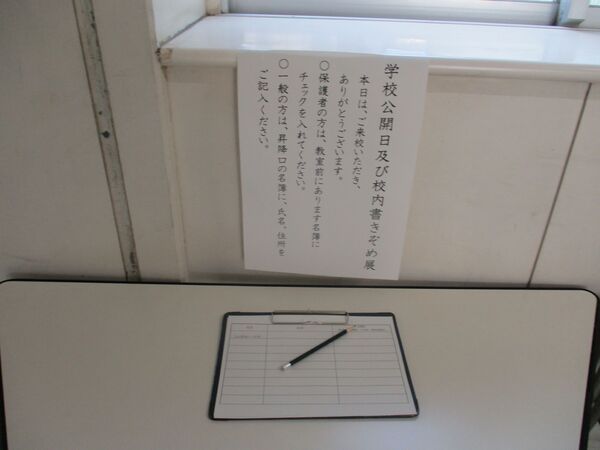 学校公開日及び校内書きぞめ展
本日は、ご来校いただき、
ありがとうございます。
○保護者の方は、教室前にあります名簿に
チェックを入れてください。
○一般の方は、昇降口の名簿に、氏名、住所を
ご記入ください。